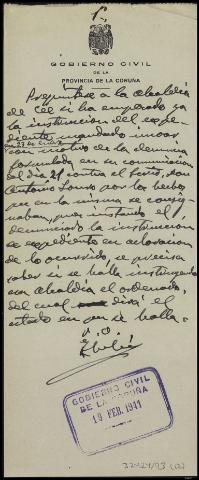 GOBIERNO CIVIL
DE LA
PROVINCIA DE LA CORUÑA
Pregúntese a la alcaldía
de Cee si ha empezado ya
la instrucción del expe-
diente mandado incoar
en 23 de Enero
con motivo de la denuncia
formulada en su comunicación
del día 21 contra el
por los hechos
que en la misma se consig-
naban, pues instando el
denunciado la instrucción
de expediente en aclaración
de lo ocurrido, se precisa
saber si se halla instruyendo
esa alcaldía el ordenado,
del cual dirá el
estado en que se halla.
GOBIERNO CIVIL
DE LA CORUÑA
19 FEB. 1941